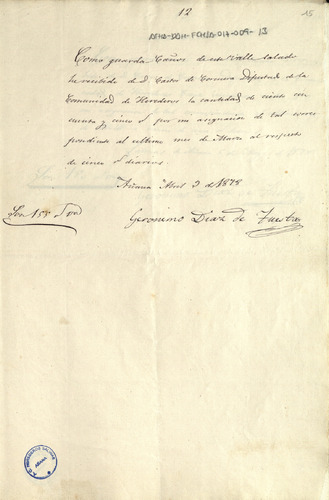 12
15
AFHA-DAH-FCHSA-017-009-13
Como guarda Caños de este Valle salado
he recibido de D. Castor de Corcuera Diputado de la
Comunidad de Herederos la cantidad de ciento cin
cuenta y cinco rs por mi asignacion de tal corres
pondiente al ultimo mes de Marzo al respecto
de cinco rs diarios.
Añana Abril 3 de 1878
Son 155 rs von
Geronimo Diaz de Tuesta